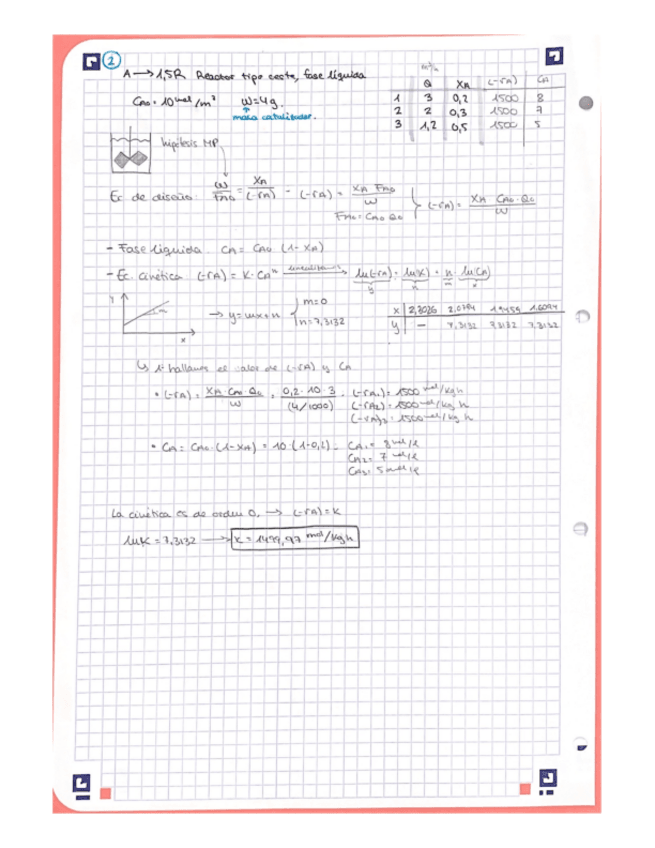 2
A → 1,5R Reactor tipo cesta, fase líquida
CA0 = 10 mol/m³ W = 4g.
masa catalizador.
Q XA (-rA) CA
1 3 0,2 1500 8
2 2 0,3 1500 7
3 1,2 0,5 1500 5
hipótesis MP
Ec de diseño: W/FA0 = XA/(-rA) - (-rA) = XA FA0/W
FA0 = CA0 Q0
(-rA) = XA CA0 · Q0/W
- Fase líquida CA = CA0 (1 - XA)
- Ec. cinética (-rA) = K · CAⁿ → ln(-rA) = ln(K) + n · ln(CA)
y n m x
y
m
x
→ y = mx + n { m = 0
n = 7,3132
x 2,3026 2,0794 1,9459 1,6094
y — 7,3132 7,3132 7,3132
↳ 1º hallamos el valor de (-rA) y CA
• (-rA) = XA · CA0 · Q0/W = 0,2 · 10 · 3/(4/1000) = (-rA1) = 1500 mol/kg h
(-rA2) = 1500 mol/kg h
(-rA)3 = 1500 mol/kg h
• CA = CA0 · (1 - XA) = 10 · (1 - 0,2) = CA1 = 8 mol/l
CA2 = 7 mol/l
CA3 = 5 mol/l
La cinética es de orden 0. → (-rA) = K
lnK = 7,3132 → K = 1499,97 mol/kg h